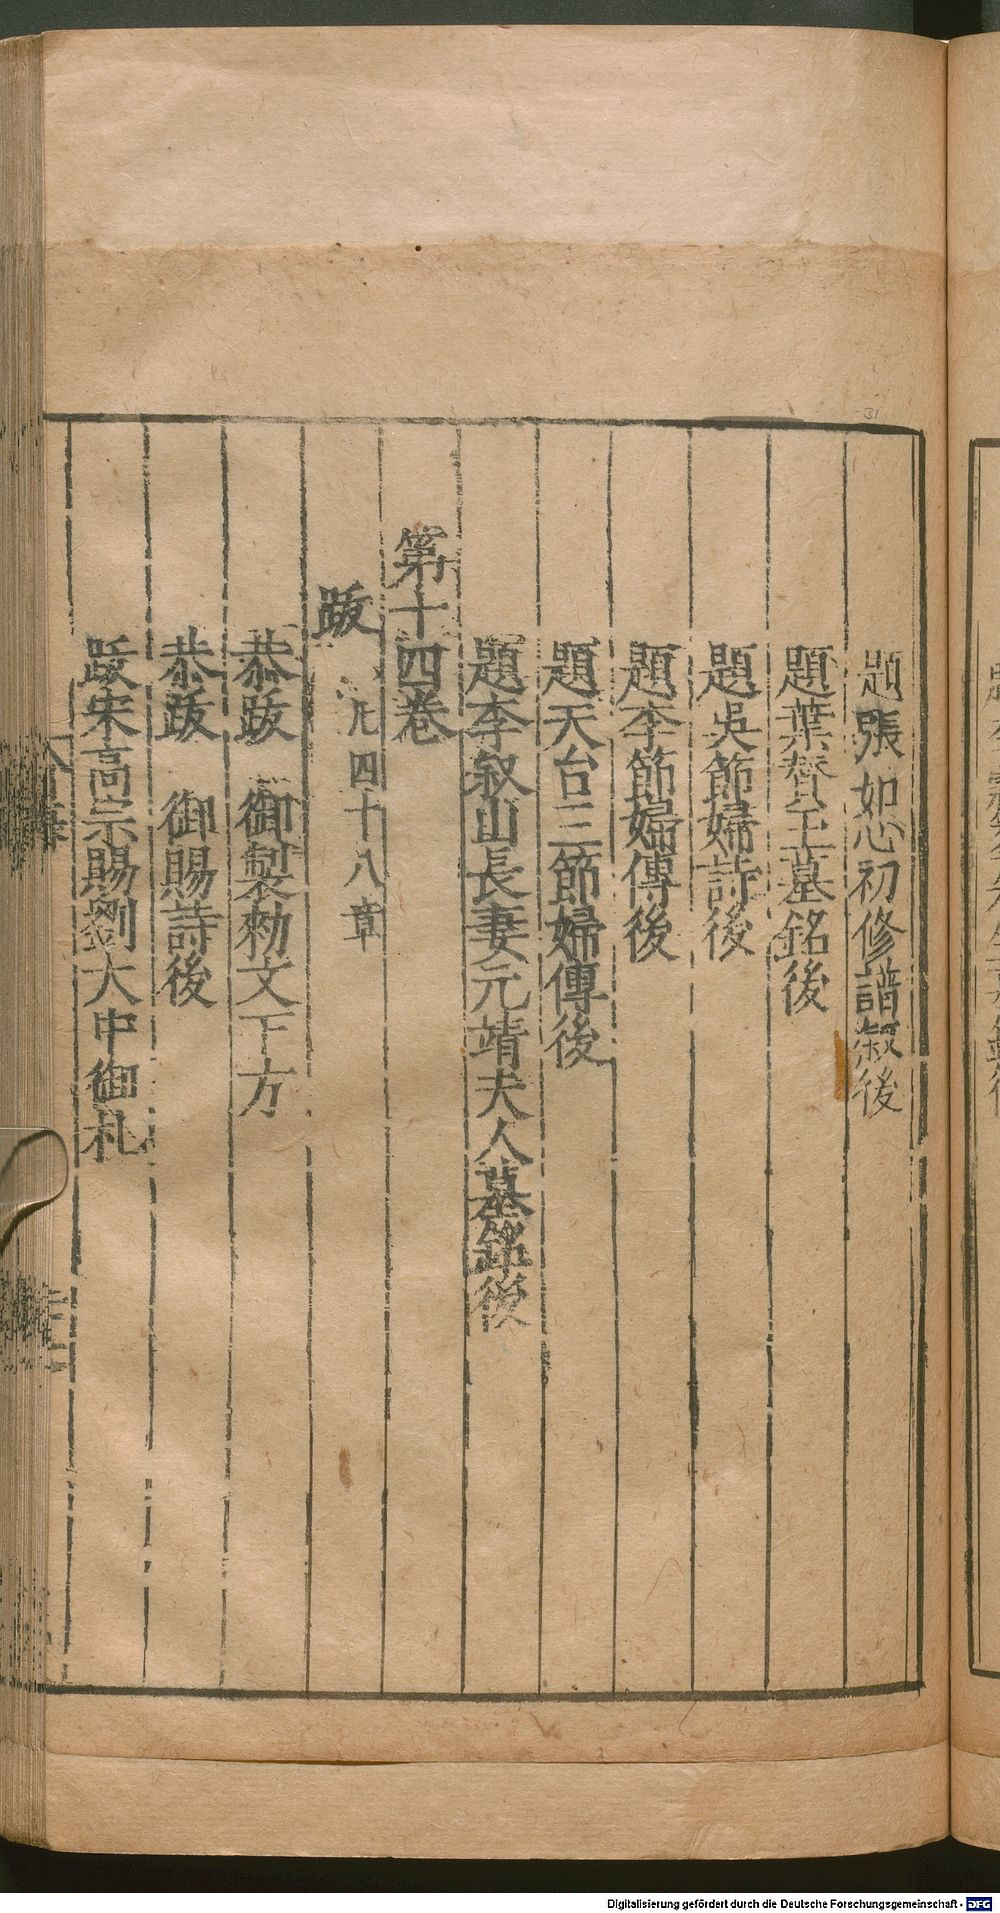 題張如心初修譜敘後
題葉贊玉墓銘後
題吳節婦詩後
題李節婦傳後
題天台三節婦傳後
題李叙山長妻元靖夫人墓銘後
第十四卷
跋 凡四十八章
恭跋 御製勑文下方
恭跋 御賜詩後
跋宋高宗賜劉大中御札
31
Digitalisierung gefördert durch die Deutsche Forschungsgemeinschaft - DFG